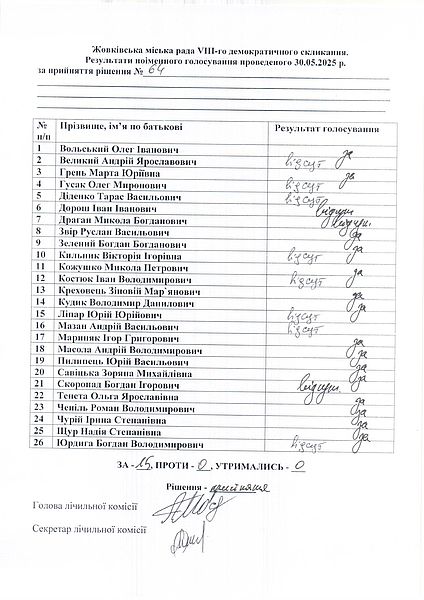 Жовківська міська рада VIII-го демократичного скликання.
Результати поіменного голосування проведеного 30.05.2025 р.
за прийняття рішення № 64
№ п/п Прізвище, ім’я по батькові Результат голосування
1 Вольський Олег Іванович за
2 Великий Андрій Ярославович відсут
3 Грень Марта Юріївна за
4 Гусак Олег Миронович відсут
5 Діденко Тарас Васильович відсут
6 Дорош Іван Іванович
7 Драган Микола Богданович
8 Звір Руслан Васильович за
9 Зелений Богдан Богданович за
10 Кильник Вікторія Ігорівна відсут
11 Кожушко Микола Петрович за
12 Костюк Іван Володимирович відсут
13 Креховець Зіновій Мар'янович за
14 Кудик Володимир Данилович за
15 Ліпар Юрій Юрійович відсут
16 Мазан Андрій Васильович відсут
17 Мариняк Ігор Григорович за
18 Масола Андрій Володимирович за
19 Пилипець Юрій Васильович за
20 Савіцька Зоряна Михайлівна за
21 Скоропад Богдан Ігорович
22 Тенета Ольга Ярославівна за
23 Чепіль Роман Володимирович за
24 Чурій Ірина Степанівна за
25 Щур Надія Степанівна за
26 Юрдига Богдан Володимирович відсут
ЗА - 15, ПРОТИ - 0, УТРИМАЛИСЬ - 0
Рішення - прийняте
Голова лічильної комісії
Секретар лічильної комісії